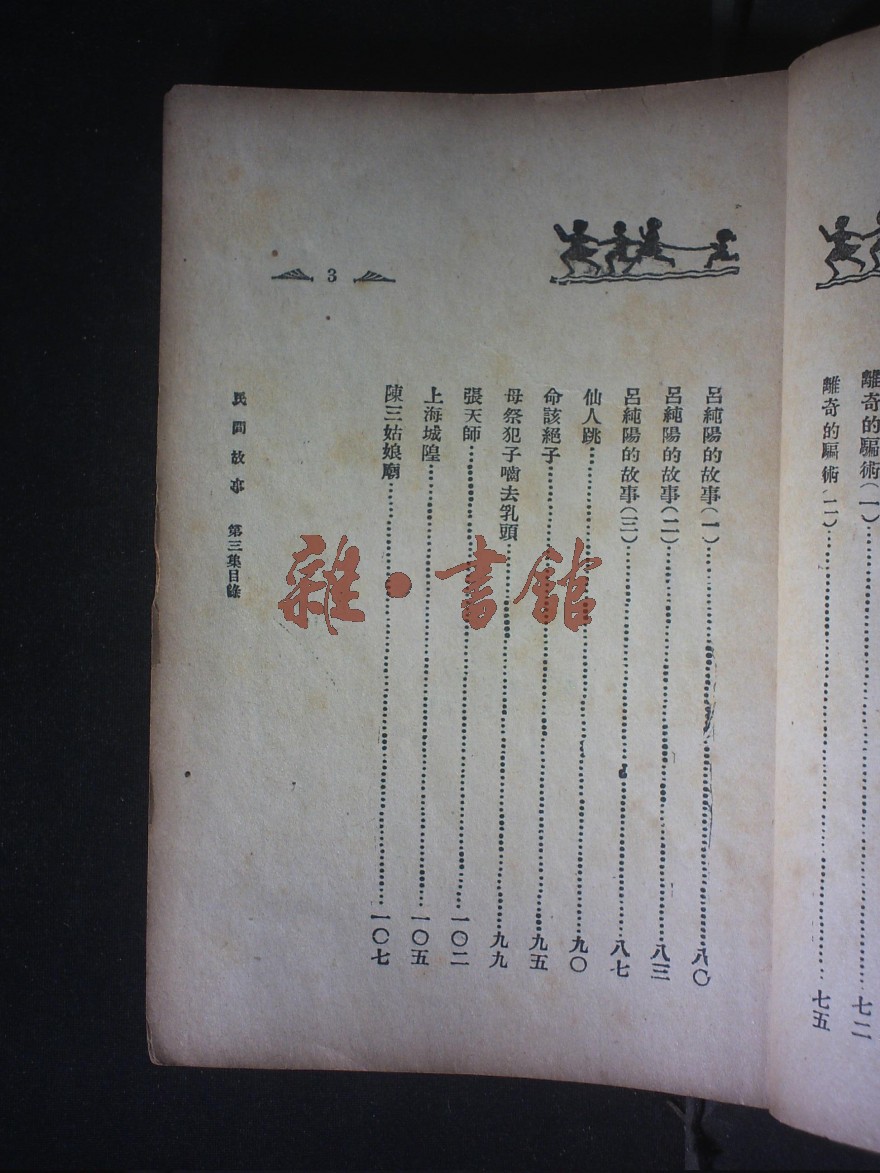 離奇的騙術(一)……七二
離奇的騙術(二)……七五
3
呂純陽的故事(一)……八〇
呂純陽的故事(二)……八三
呂純陽的故事(三)……八七
仙人跳……九〇
命該絕子……九五
母祭犯子嚙去乳頭……九九
張天師……一〇二
上海城隍……一〇五
陳三姑娘廟……一〇七
民間故事 第三集目錄
雜·書館